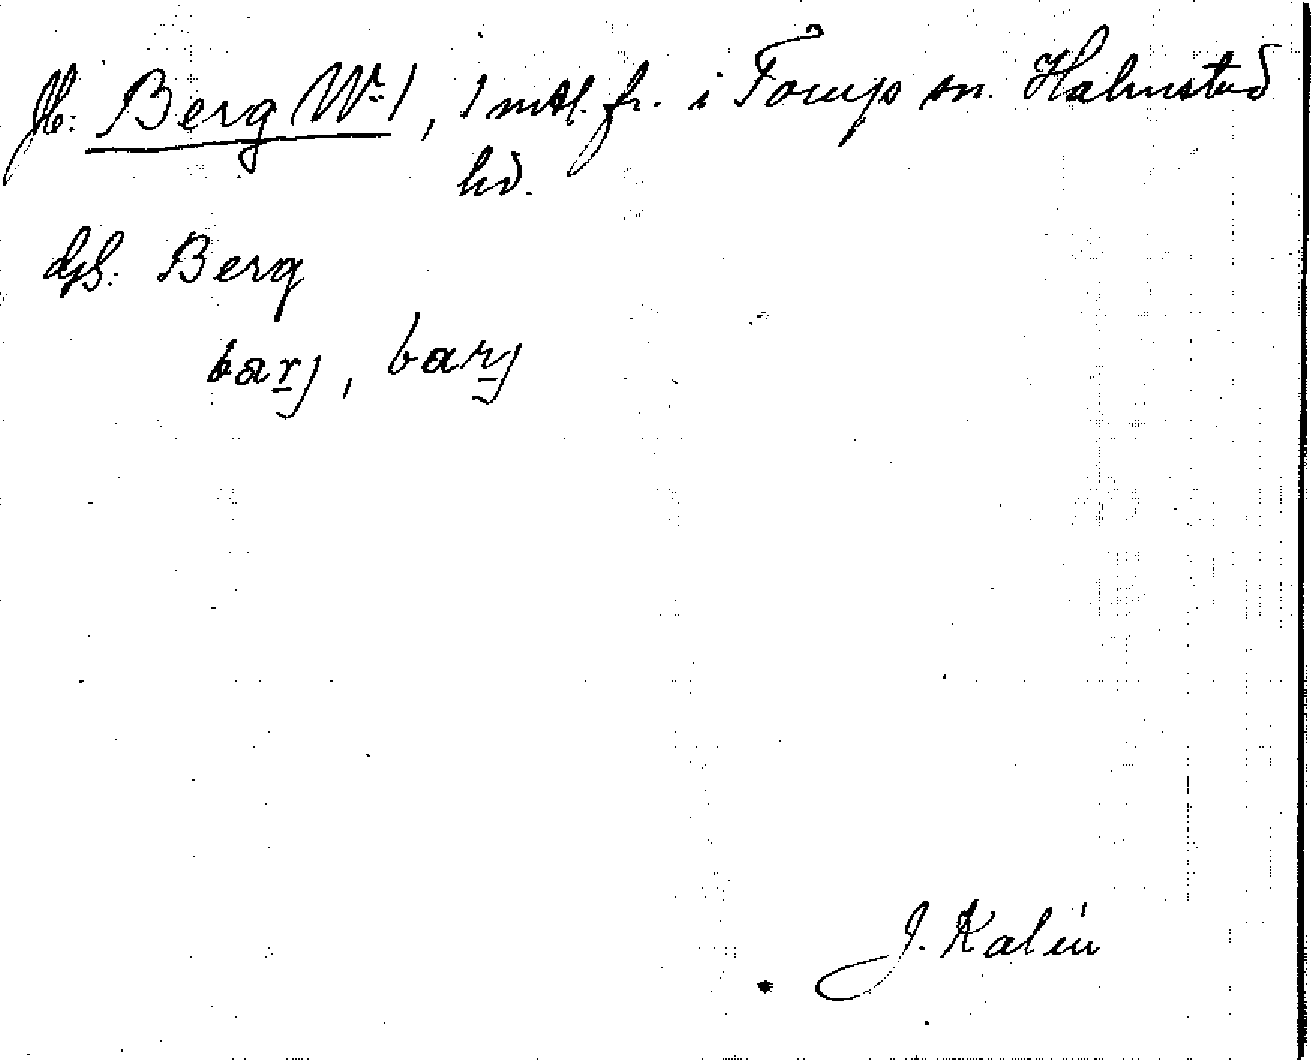 Jb: Berg Nr 1, 1 mtl. fr. i Tönnersjö sn. Halmstad
hd.
dsb. Berg
barj, barj
J. Kalén